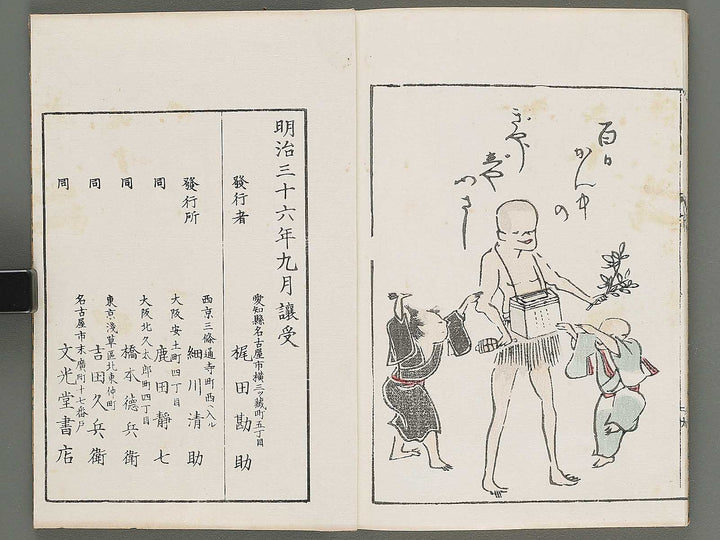 百日
かん中
の
ぎやう
明治三十六年九月讓受
發行者
愛知縣名古屋市橫三ッ藏町五丁目
梶田勘助
發行所
西京三條通寺町西ヘ入ル
細川清助
同
大阪安土町四丁目
鹿田靜七
同
大阪北久太郎町四丁目
橋本德兵衛
同
東京淺草區北東仲町
吉田久兵衛
同
名古屋市末廣町十七番戶
文光堂書店